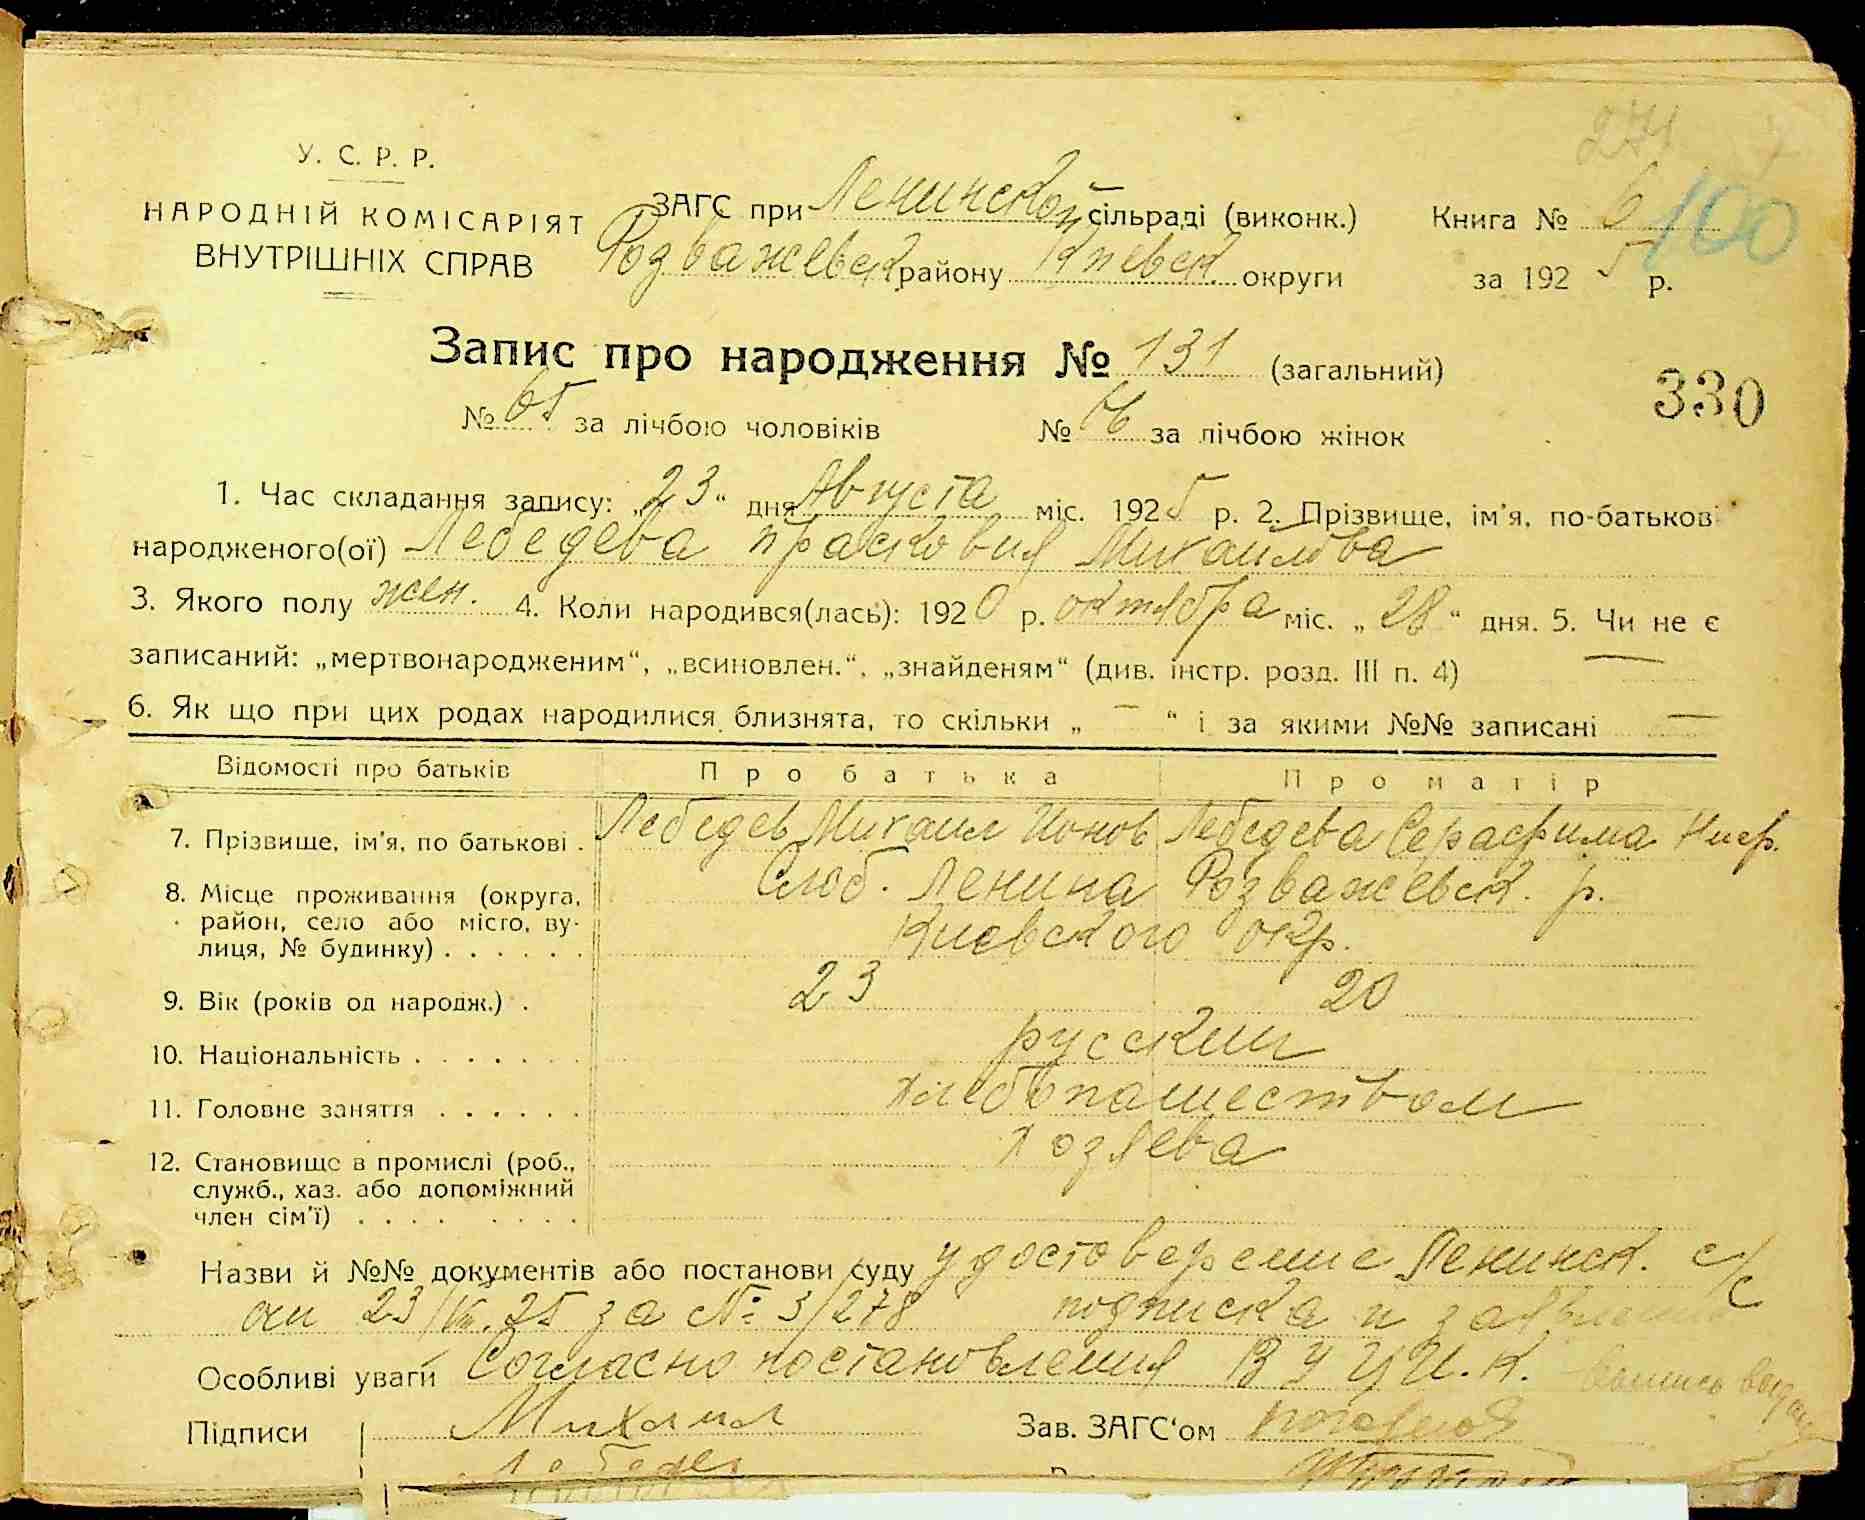 271
У. С. Р. Р.
НАРОДНІЙ КОМІСАРІЯТ
ВНУТРІШНІХ СПРАВ
ЗАГС при Ленинской сільраді (виконк.) Книга № 6 100
Розважевск району Киевск. округи за 192 5 р.
Запис про народження № 131 (загальний)
330
№ 65 за лічбою чоловіків № за лічбою жінок
1. Час складання запису: „23“ дня Августа міс. 1925 р. 2. Прізвище, ім'я, по-батькові
народженого(ої) Лебедева Прасковия Михайлова
3. Якого полу жен. 4. Коли народився(лась): 1920 р. октября міс. „28“ дня. 5. Чи не є
записаний: „мертвонародженим“, „всиновлен.“, „знайденям“ (див. інстр. розд. III п. 4) —
6. Як що при цих родах народилися близнята, то скільки „ — “ і за якими №№ записані —
Відомості про батьків Про батька Про матір
7. Прізвище, ім'я, по батькові . Лебедев Михаил Ионов Лебедева Серафима Ниф.
8. Місце проживання (округа, Слоб. Ленина Розважевск. р.
район, село або місто, ву-
лиця, № будинку) . . . . . . Киевского окр.
9. Вік (років од народж.) . 23 20
10. Національність . . . . . . . русский
11. Головне заняття . . . . . . хлебопашеством
12. Становище в промислі (роб., хозяева
служб., хаз. або допоміжний
член сім'ї) . . . . . . . .
Назви й №№ документів або постанови суду удостоверение Ленинск. с/с
23/VIII.25 за № 3/278 подписка и заявление
Особливі уваги Согласно постановления ВУЦИ.К.
Підписи Михаил Зав. ЗАГС'ом
Лебедев